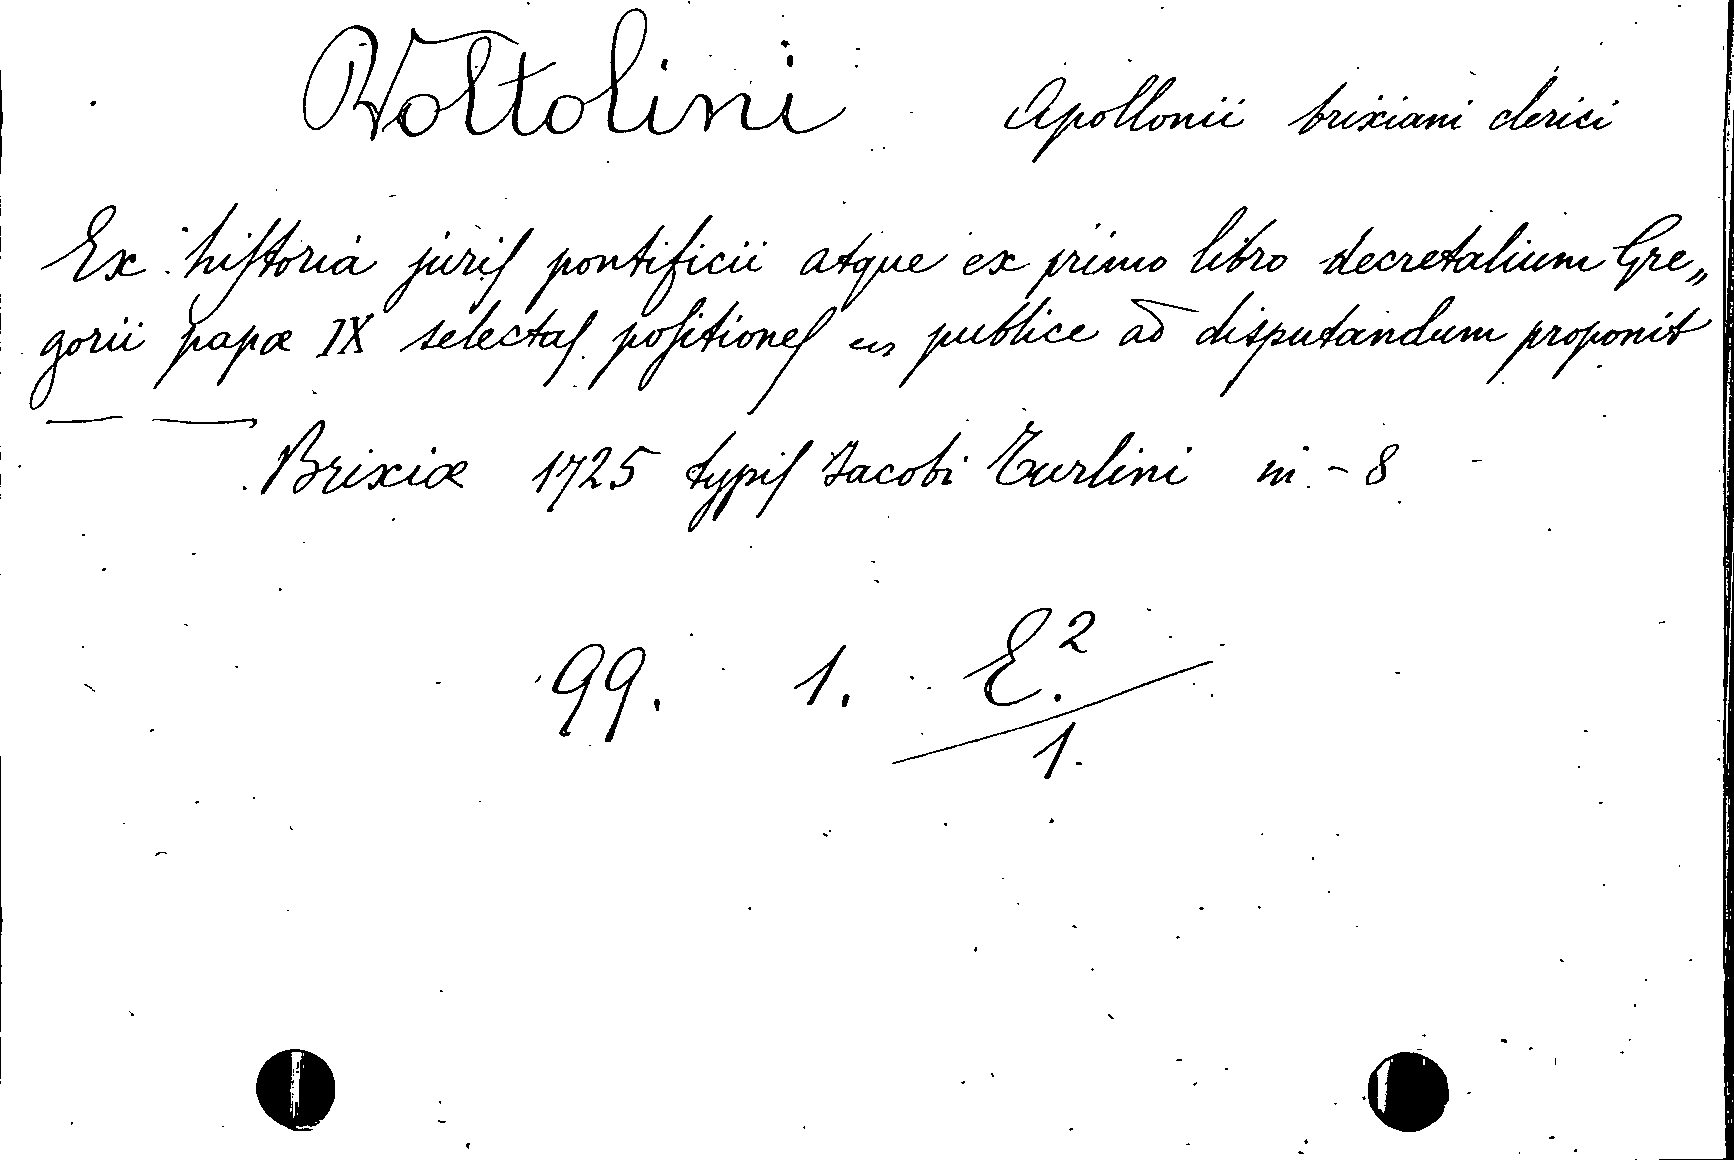 Voltolini Apollonii brixiani clerici
Ex historia juris pontificii atque ex primo libro decretalium Gre„
gorii papæ IX selectas positiones publice ad disputandum proponit
— —
Brixiæ 1725 typis Jacobi Turlini in - 8
99. 1. E.²
1.